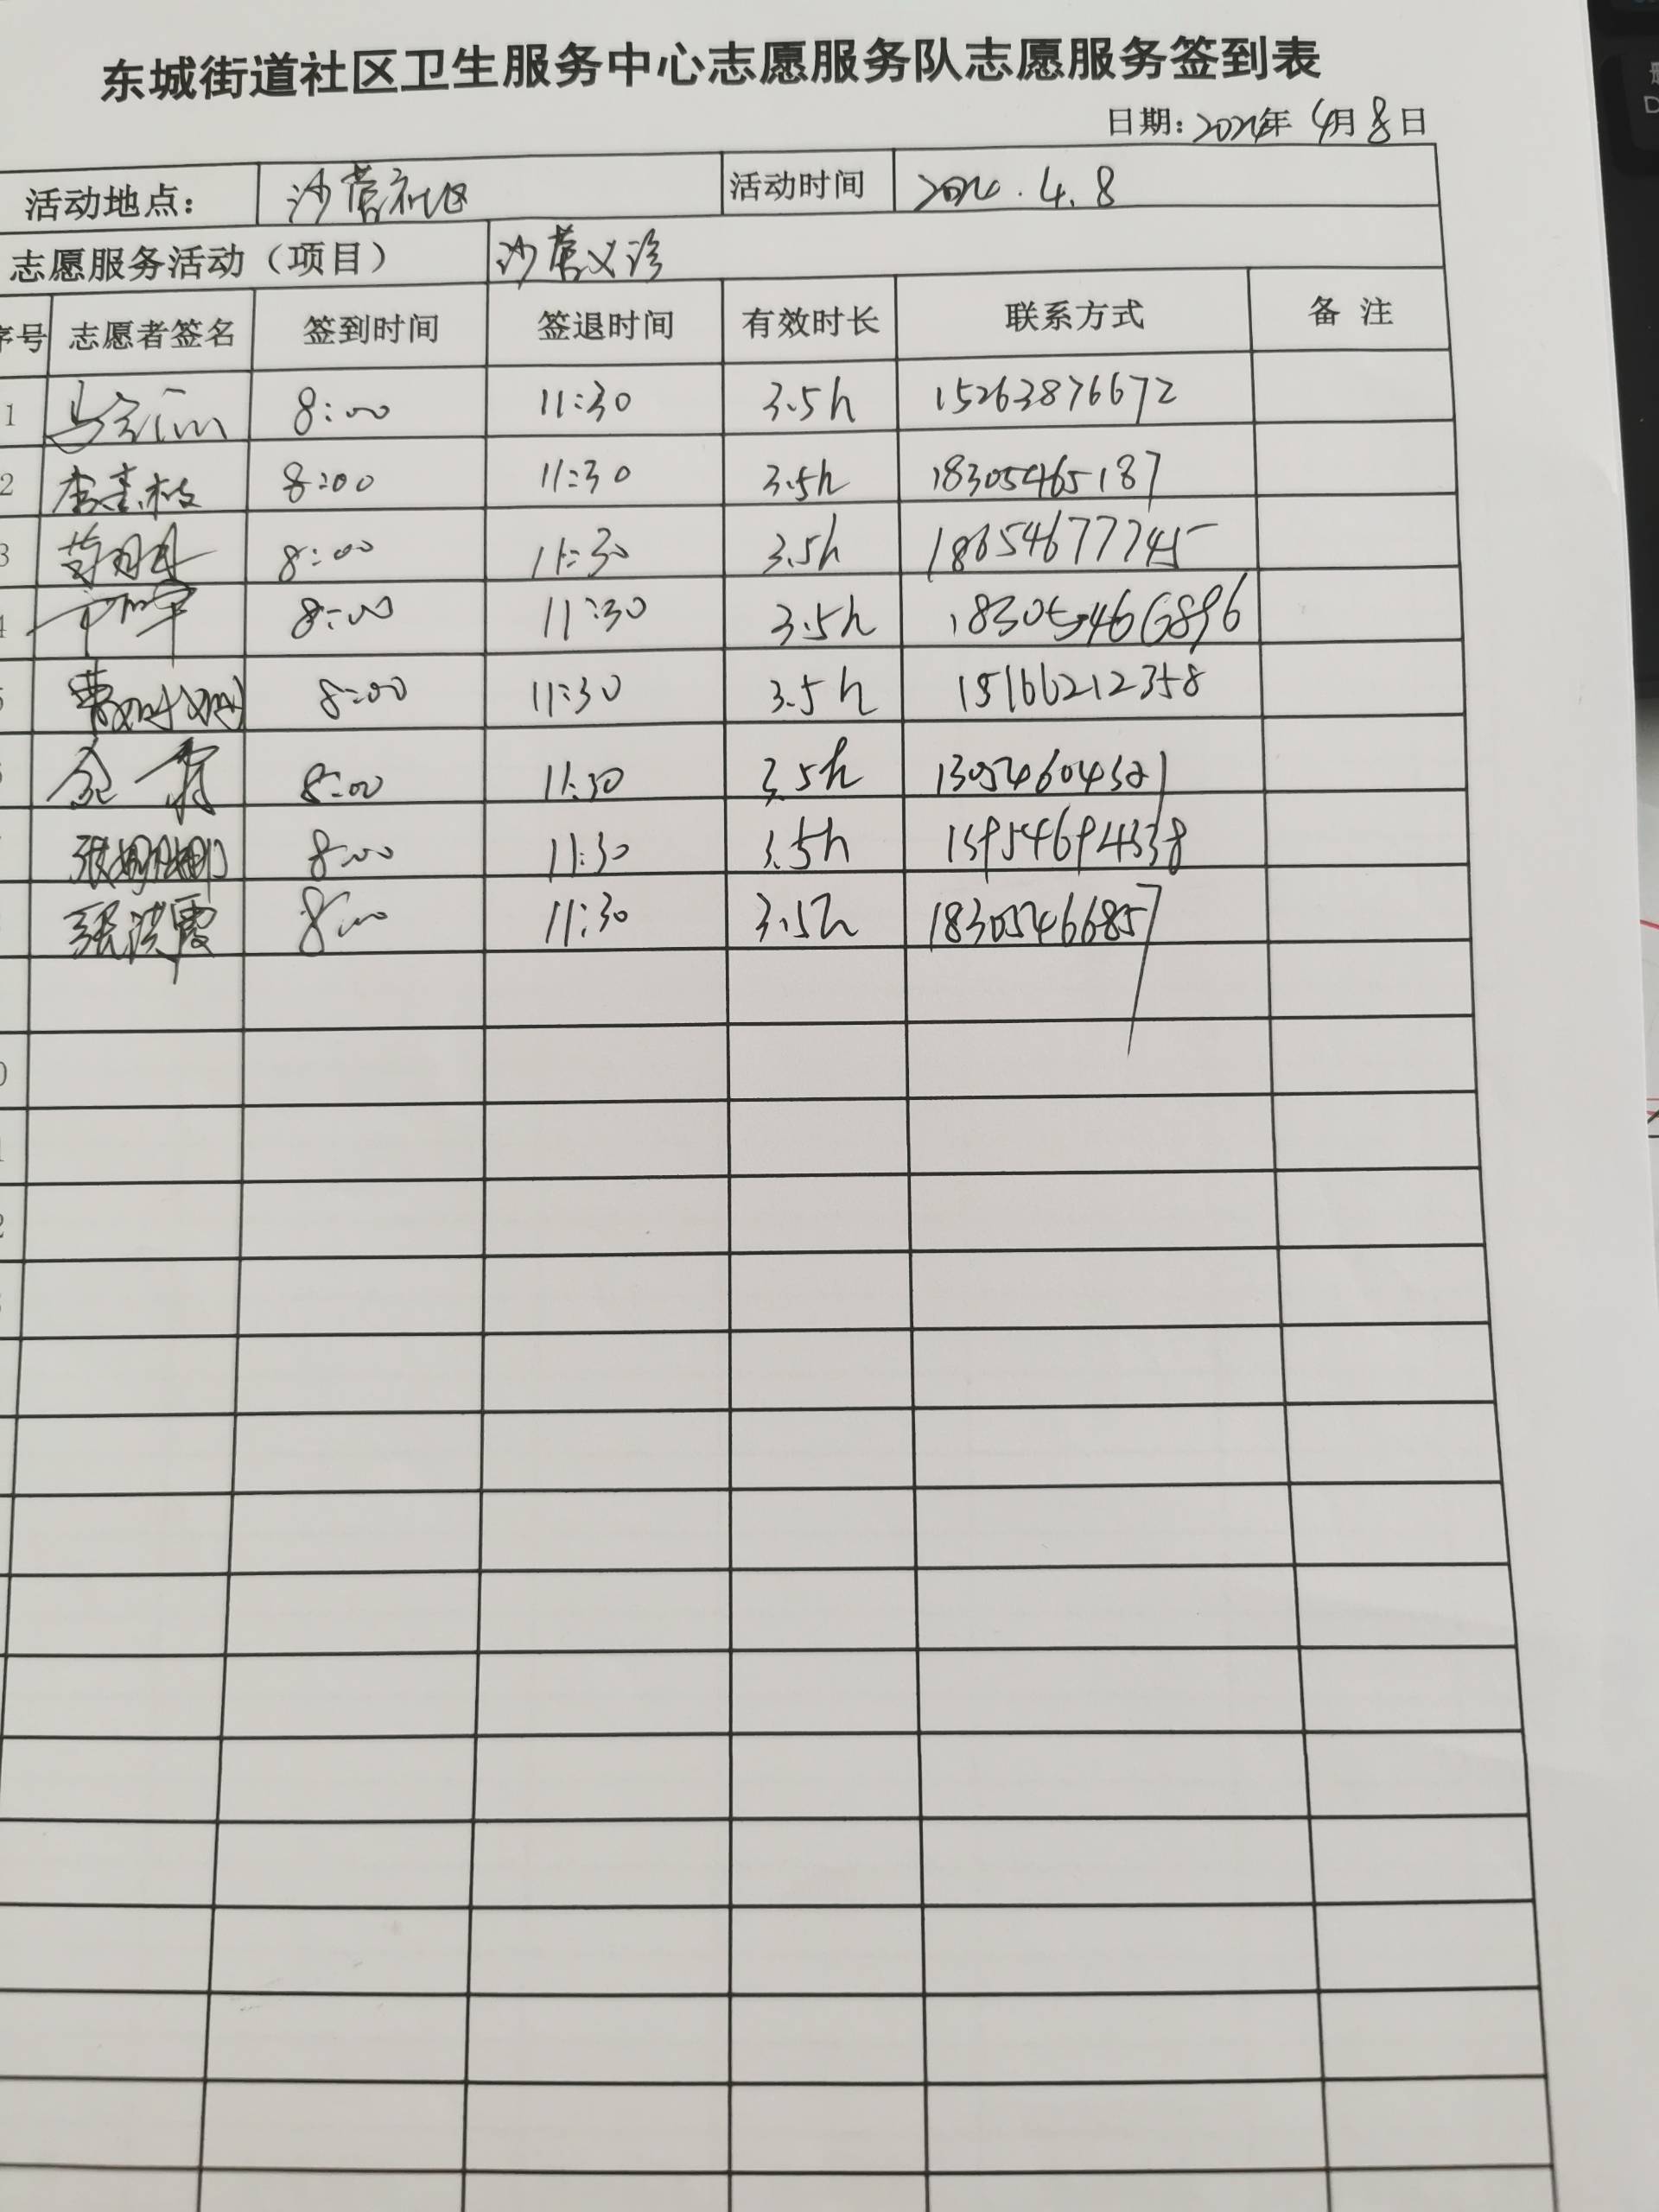 东城街道社区卫生服务中心志愿服务队志愿服务签到表
日期:2024年 4月 8日
活动地点: 沙营社区 活动时间 2024.4.8
志愿服务活动(项目) 沙营义诊
序号 志愿者签名 签到时间 签退时间 有效时长 联系方式 备 注
1 8:00 11:30 3.5h 15263876672
2 李青枝 8:00 11:30 3.5h 18305465187
3 8:00 11:30 3.5h 18654677745
4 8:00 11:30 3.5h 18305466896
5 8:00 11:30 3.5h 15166212358
8:00 11:30 3.5h
张娜娜 8:00 11:30 3.5h
张洪霞 8:00 11:30 3.5h 18305466857